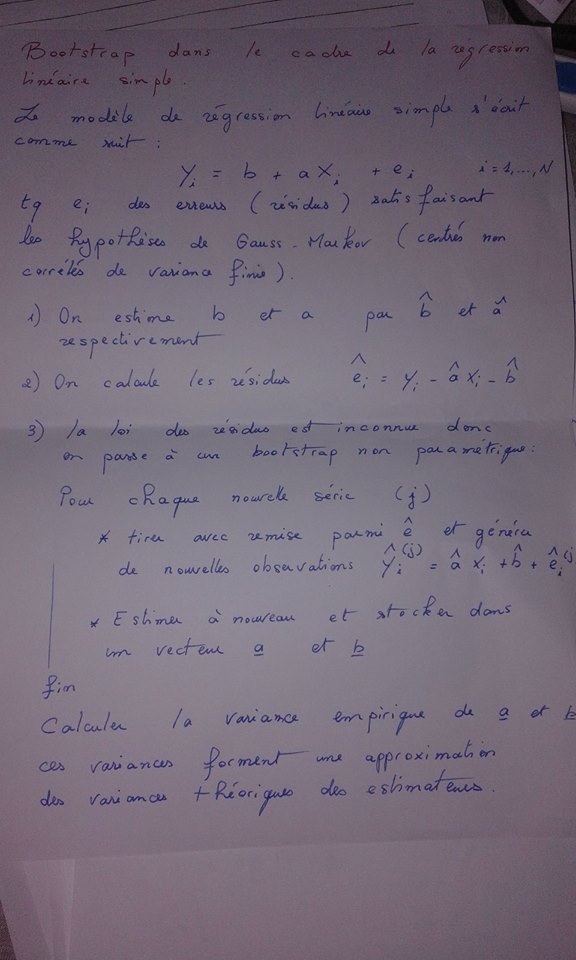 Bootstrap dans le cadre de la régression
linéaire simple.
Le modèle de régression linéaire simple s'écrit
comme suit :
Yi = b + a Xi + ei i = 1, ..., N
tq ei des erreurs (résidus) satisfaisant
les hypothèses de Gauss-Markov (centrés non
corrélés de variance finie).
1) On estime b et a par b̂ et â
respectivement
2) On calcule les résidus êi = yi - â xi - b̂
3) la loi des résidus est inconnue donc
on passe à un bootstrap non paramétrique :
Pour chaque nouvelle série (j)
* tirer avec remise parmi ê et générer
de nouvelles observations ŷi(j) = â xi + b̂ + êi(j
* Estimer à nouveau et stocker dans
un vecteur a et b
fin
Calculer la variance empirique de a et b
ces variances forment une approximation
des variances théoriques des estimateurs.